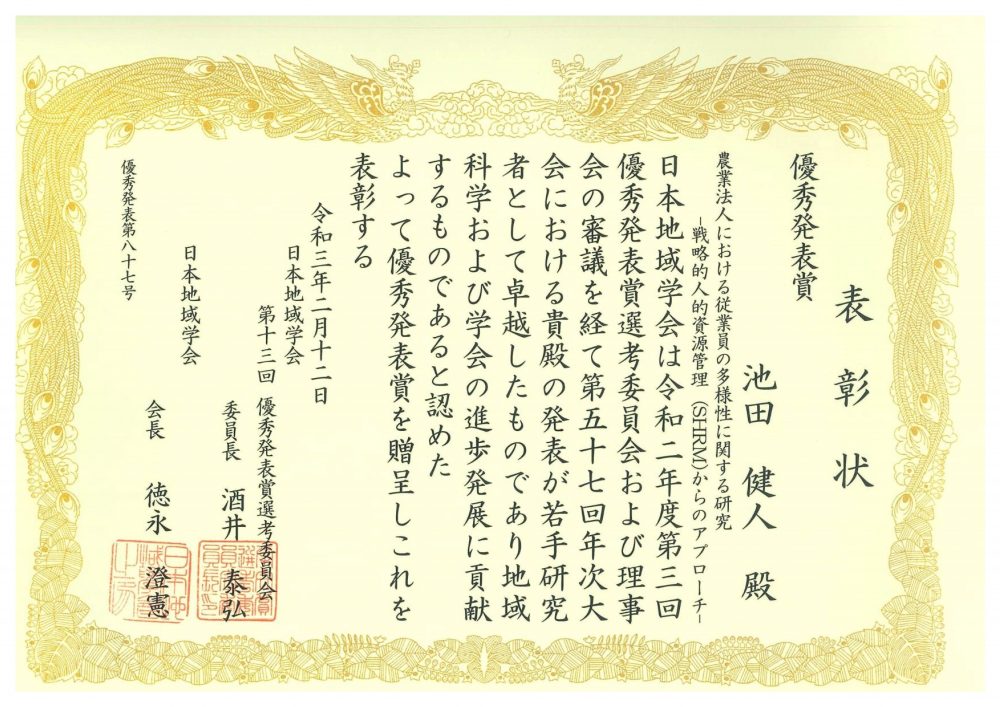 表彰状
優秀発表賞
池田 健人 殿
農業法人における従業員の多様性に関する研究
–戦略的人的資源管理 (SHRM)からのアプローチ–
日本地域学会は令和二年度第三回
優秀発表賞選考委員会および理事
会の審議を経て第五十七回年次大
会における貴殿の発表が若手研究
者として卓越したものであり地域
科学および学会の進歩発展に貢献
するものであると認めた
よって優秀発表賞を贈呈しこれを
表彰する
令和三年二月十二日
日本地域学会
第十三回 優秀発表賞選考委員会
委員長 酒井 泰弘
日本地域学会
会長 徳永 澄憲
優秀発表第八十七号